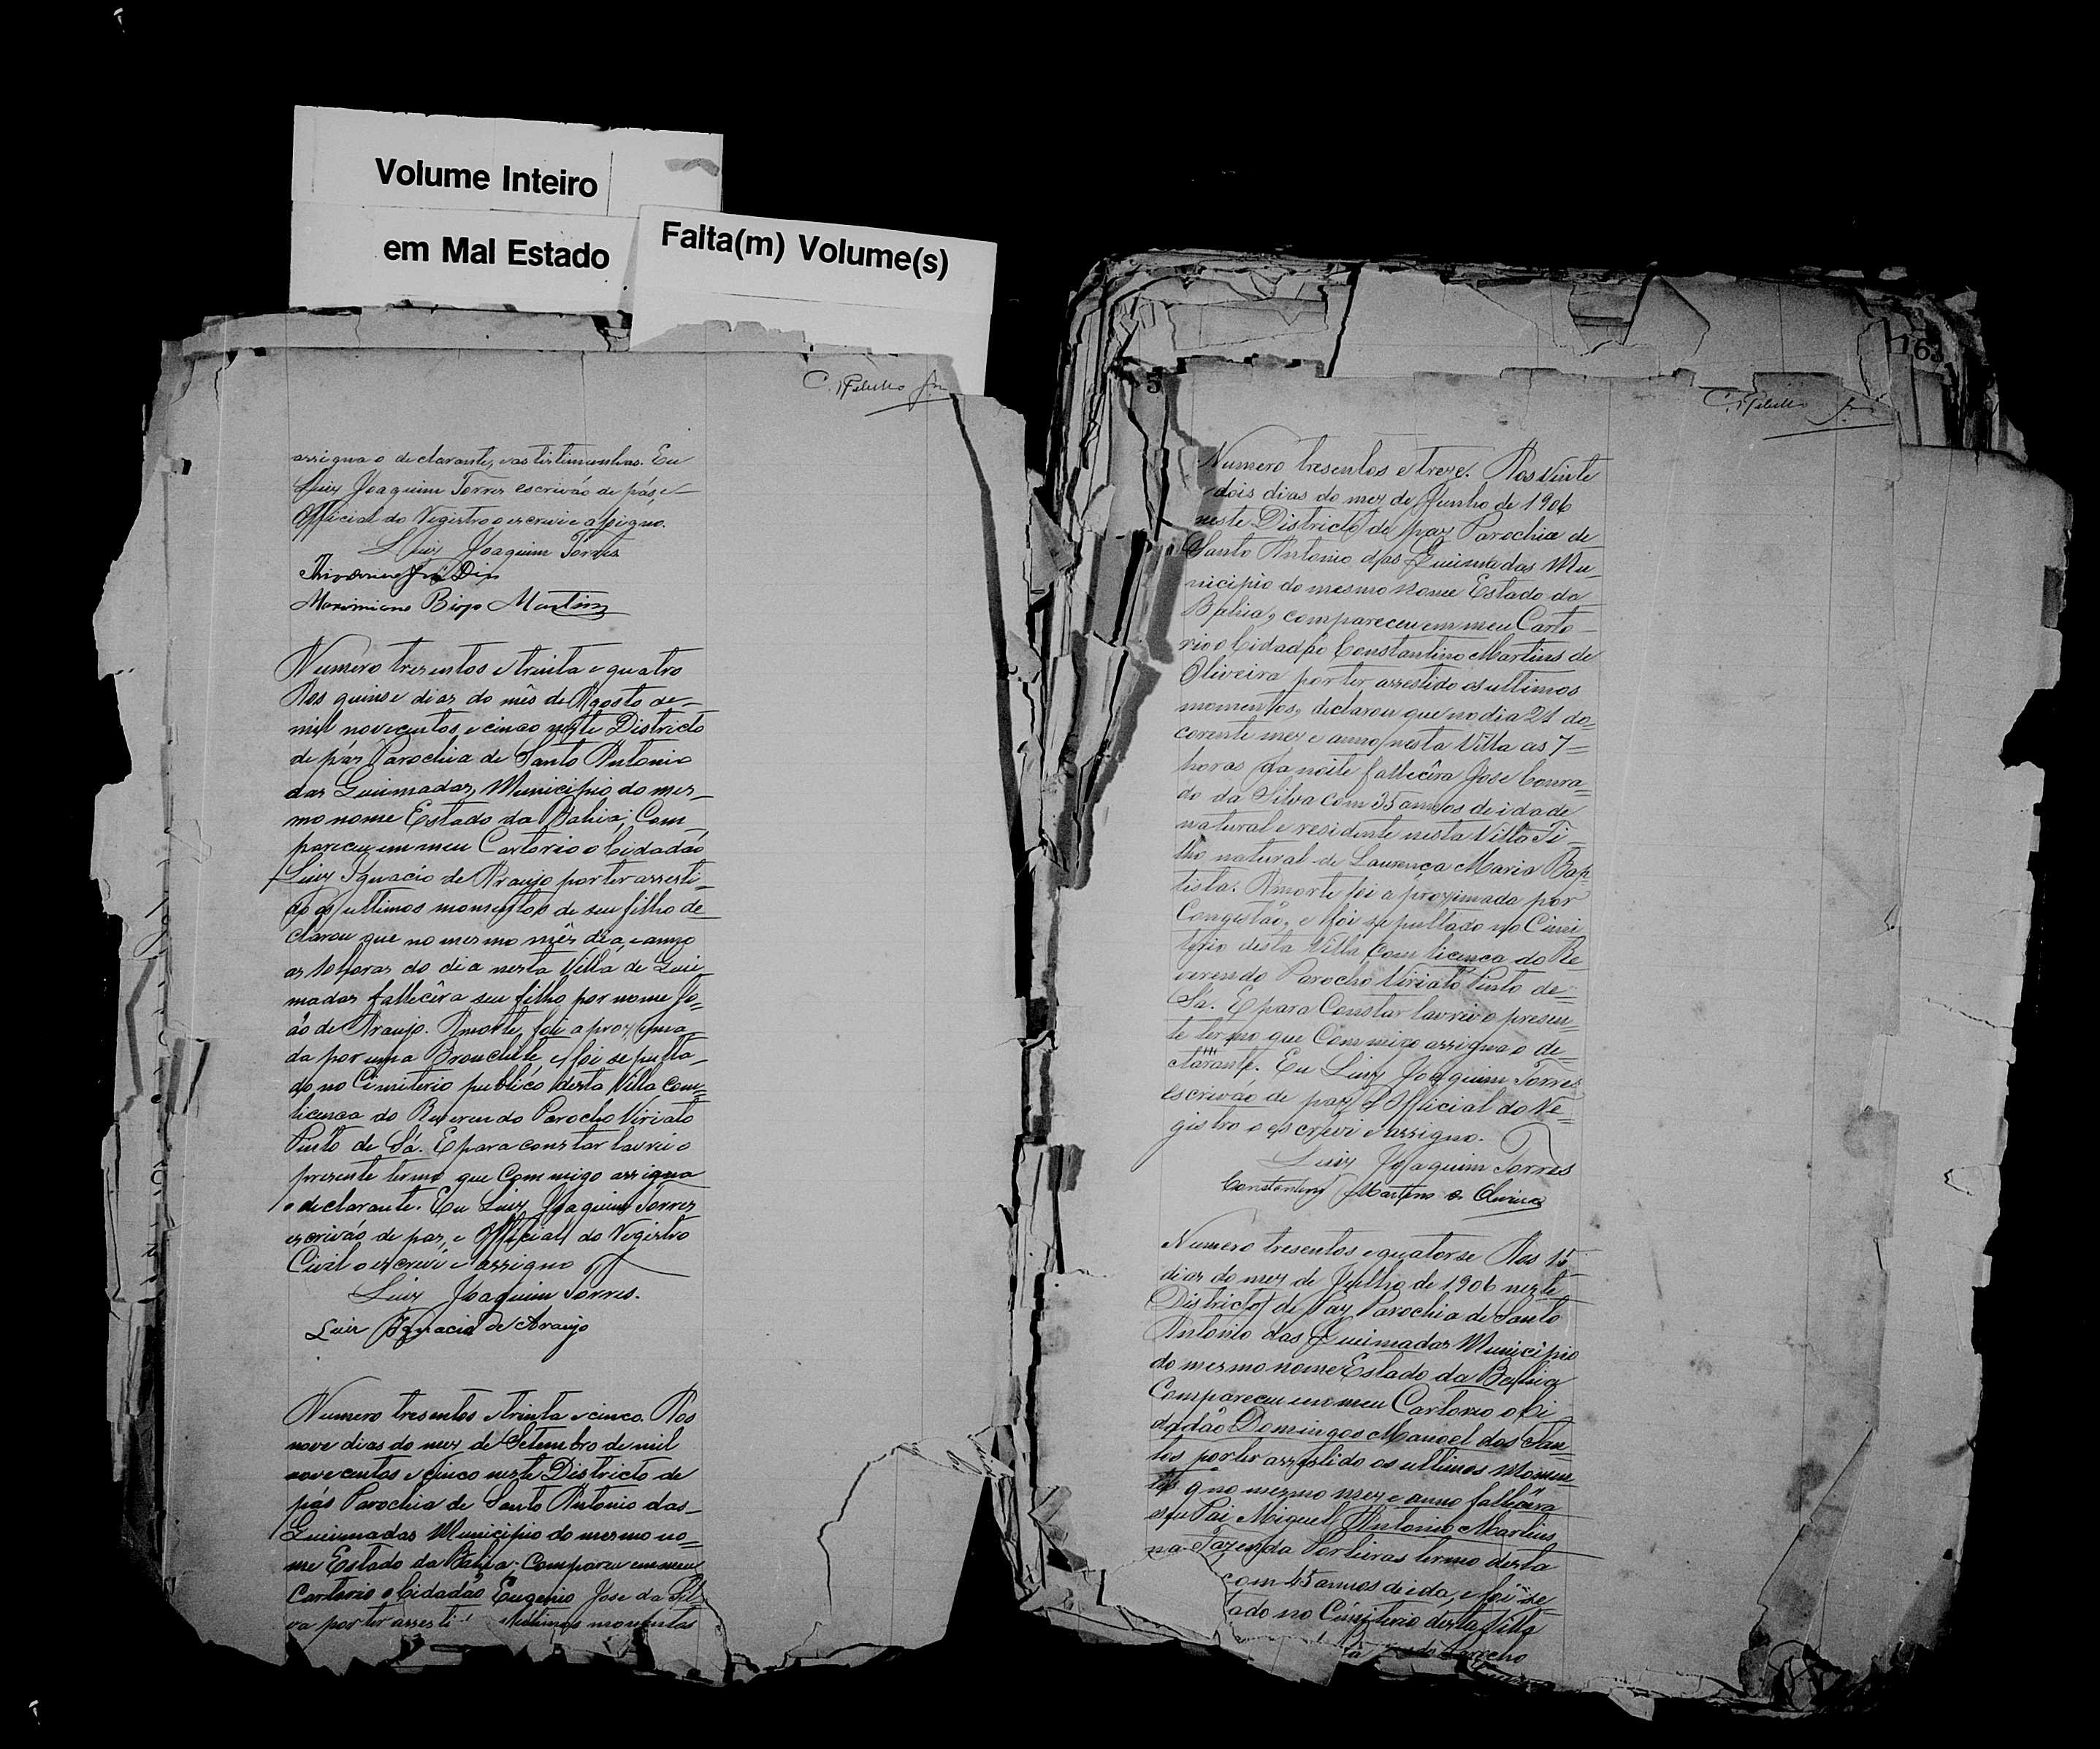 Volume Inteiro
em Mal Estado
Falta(m) Volume(s)
assigna o declarante, e as testimunhas. Eu
Luiz Joaquim Torres escrivão de páz, e
Official do Registro o escrevi e assigno.
Luiz Joaquim Torres
José Dias
Martins
Numero tresentos e trinta e quatro
Aos quinse dias do mês de Agosto de
mil novecentos e cinco neste Districto
de páz Parochia de Santo Antonio
das Queimadas, Municipio do mes-
mo nome Estado da Bahia; Com
pareceu em meu Cartorio o Cidadão
Luiz Ignacio de Araujo por ter assesti-
do os ultimos momentos de seu filho de
clarou que no mesmo mês dia, e anno
as 10 horas do dia nesta Villa de Quei
madas fallecêra seu filho por nome Jo=
ão de Araujo. A morte, foi aproximâ
da por uma Bronchite e foi sepulta-
do no Cimiterio publico desta Villa com=
licença do Reverendo Parocho Viriato
Pinto de Sá. E para constar lavrei o
presente termo que commigo assigna
o declarante. Eu Luiz Joaquim Torres
escrivão de paz, e Official do Registro
Civil o escrevi e assigno
Luiz Joaquim Torres.
Luiz Ignacio de Araujo
Numero tresentos e trinta e cinco. Aos
nove dias do mez de Setembro de mil
novecentos e cinco neste Districto de
páz Parochia de Santo Antonio das-
Queimadas Municipio do mesmo no=
me Estado da Bahia; Compareu em meu
Cartorio o Cidadão Eugenio Jose da Sil
va por ter assesti ultimos momentos
5
163
Numero tresentos e treze. Aos vinte
dois dias do mez de Junho de 1906
neste Districto de paz Parochia de
Santo Antonio das Queimadas Mu-
nicipio do mesmo nome Estado da
Bahia, compareceu em meu Carto-
rio o Cidadão Constantino Martins de
Oliveira por ter assestido os ultimos
momentos, declarou que no dia 21 do=
corente mez e anno nesta Villa as 7=
horas da noite fallecêra Jose Conra=
do da Silva com 35 annos de idade
natural e residente nesta Villa Fi-
lho natural de Laurença Maria Bap
tista. A morte foi aproximada por
Congistão, e foi sepultado no Cimi
terio desta Villa com licenca do Re
verendo Parocho Viriato Pinto de=
Sá. E para Constar lavrei o presen=
te termo que Commigo assigna o de=
clarante. Eu Luiz Joaquim Torres
escrivão de paz e Official do Re=
gistro o escrevi e assigno.
Luiz Joaquim Torres
Constantino Martins de Oliveira
Numero tresentos e quatorse Aos 15
dias do mez de Julho de 1906 neste
Districto de Paz Parochia de Santo
Antonio das Queimadas Municipio
do mesmo nome Estado da Bahia
Compareceu em meu Cartorio o Ci
dadão Domingos Manoel dos San=
tos por ter assestido os ultimos momen
tos q no mesmo mez e anno fallecêra
seu Pai Miguel Antonio Martins
na Fazenda Porteiras termo desta
com 45 annos de ida, e foi se
tado no Cimiterio desta Villa
do Parocho